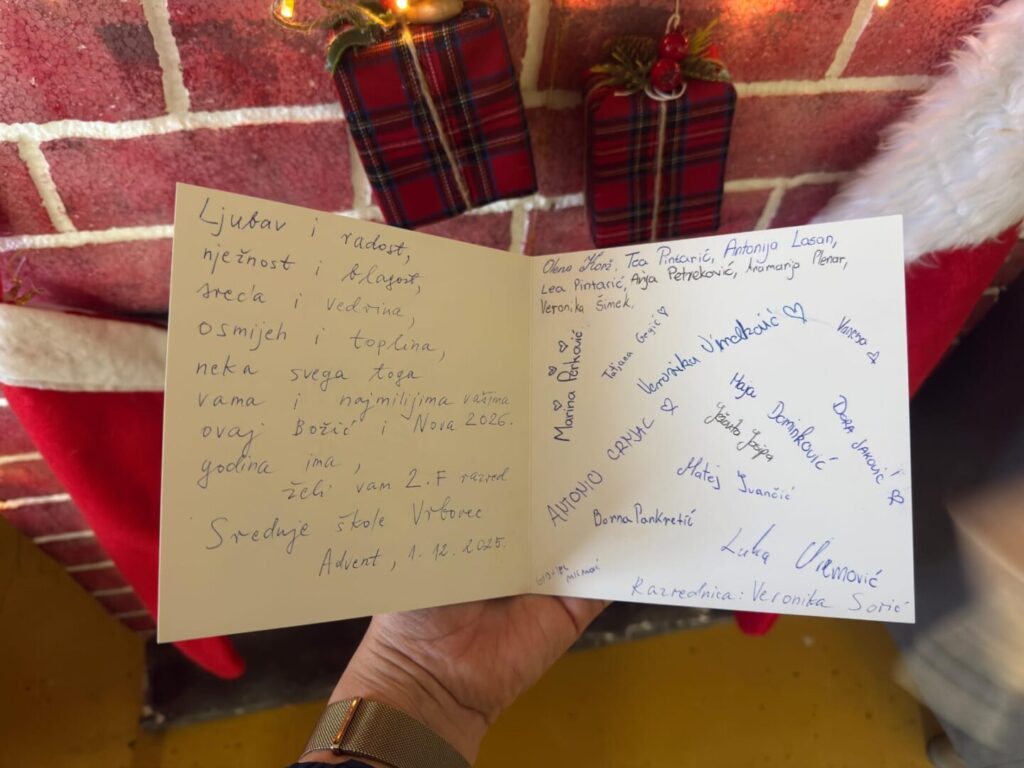 Ljubav i radost,
nježnost i blagost,
sreća i vedrina,
osmijeh i toplina,
neka svega toga
vama i najmilijima vašima
ovaj Božić i Nova 2026.
godina ima,
želi vam 2.F razred
Srednje škole Vrbovec
Advent, 1.12.2025.
Olena Korž, Tea Pintarić, Antonija Lasan,
Lea Pintarić, Anja Petreković, Anamarija Plenar,
Veronika Šimek,
Marina Perković
Tatjana Gregić
Veronika
Vanesa
ANTONIO CRNJAC
Maja Dominković
Josipa
DORA JAKOVIĆ
Matej Ivančić
Borna Pankretić
Luka
Razrednica: Veronika Sorić